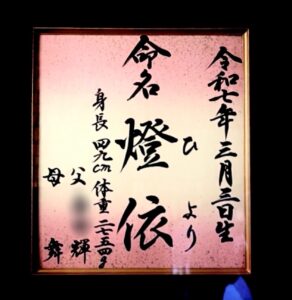 令和七年三月三日生
命名 燈依
ひより
身長 四九cm 体重 二七五四g
父 輝
母 舞